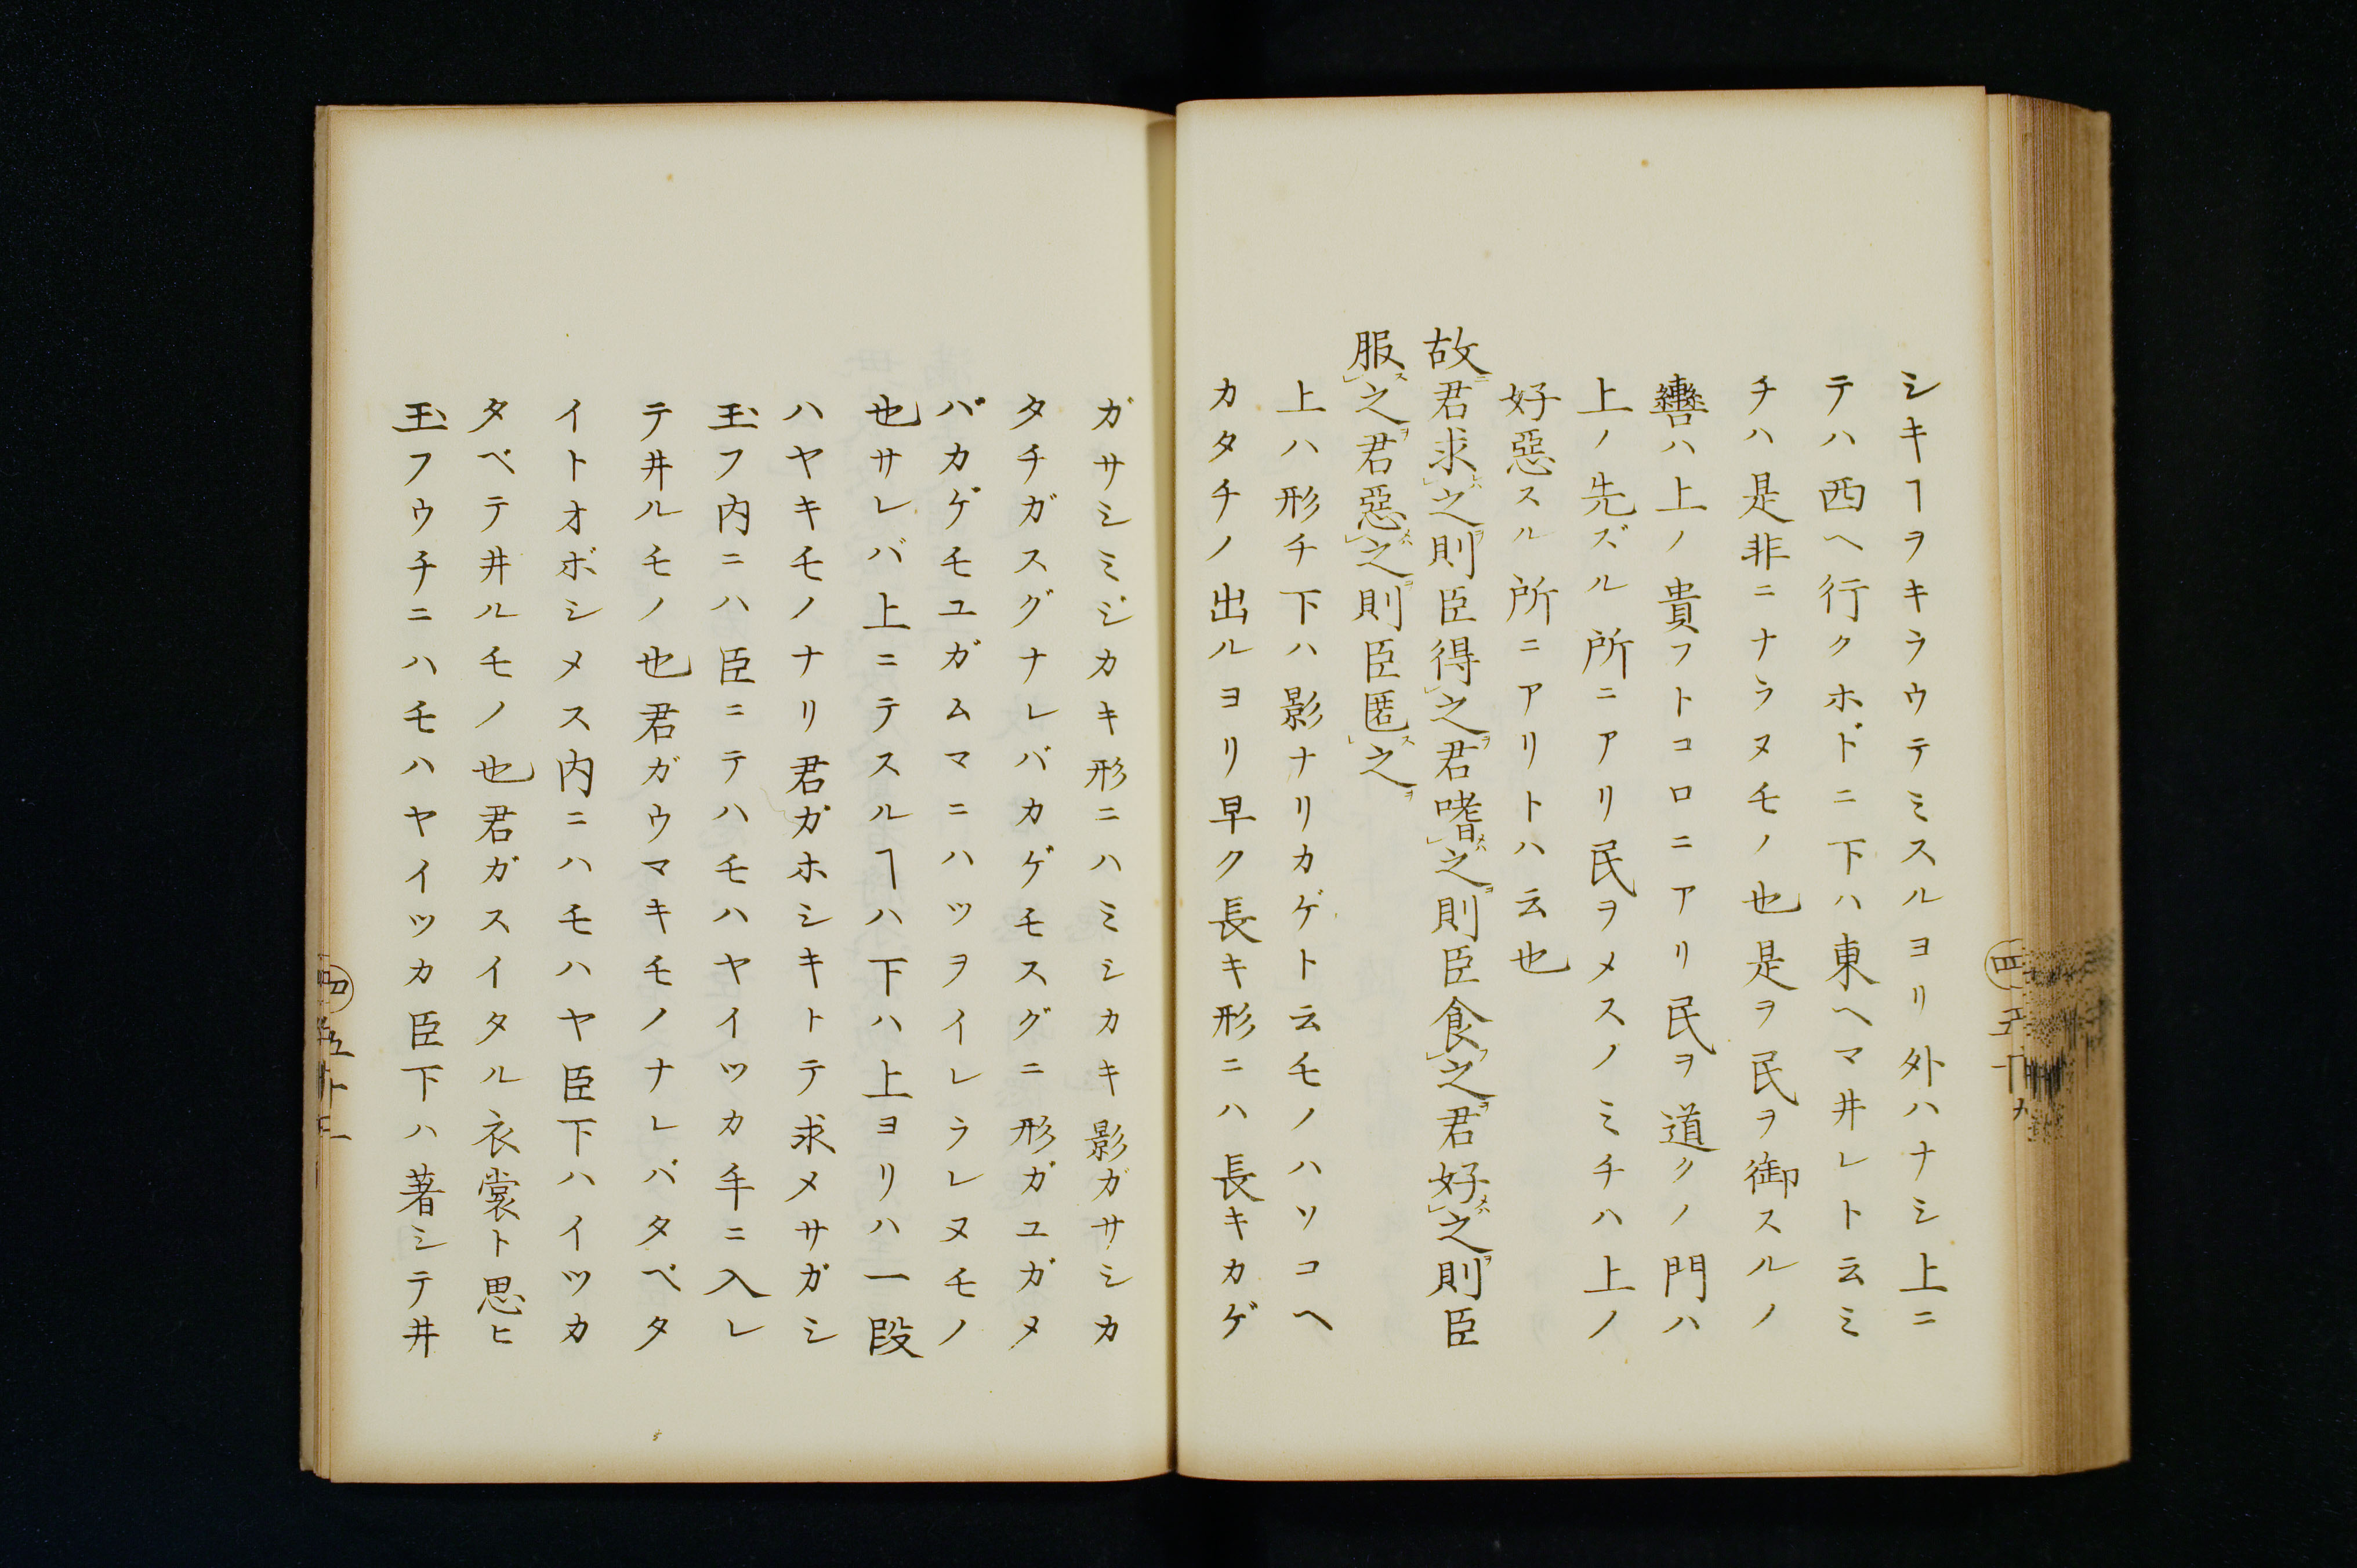 シキヿヲキラウテミスルヨリ外ハナシ上ニ
テハ西ヘ行クホドニ下ハ東ヘマ井レト云ミ
チハ是非ニナラヌモノ也是ヲ民ヲ御スルノ
轡ハ上ノ貴フトコロニアリ民ヲ道クノ門ハ
上ノ先ズル所ニアリ民ヲメスノミチハ上ノ
好惡スル所ニアリトハ云也
故君求之則臣得之君嗜之則臣食之君好之則臣
服之君惡之則臣匿之
上ハ形チ下ハ影ナリカゲト云モノハソコヘ
カタチノ出ルヨリ早ク長キ形ニハ長キカゲ
ガサシミジカキ形ニハミシカキ影ガサシカ
タチガスグナレバカゲモスグニ形ガユガメ
バカゲモユガムマニハツヲイレラレヌモノ
也サレバ上ニテスルヿハ下ハ上ヨリハ一段
ハヤキモノナリ君ガホシキトテ求メサガシ
玉フ内ニハ臣ニテハモハヤイツカ手ニ入レ
テ井ルモノ也君ガウマキモノナレバタベタ
イトオボシメス内ニハモハヤ臣下ハイツカ
タベテ井ルモノ也君ガスイタル衣裳ト思ヒ
玉フウチニハモハヤイツカ臣下ハ著シテ井